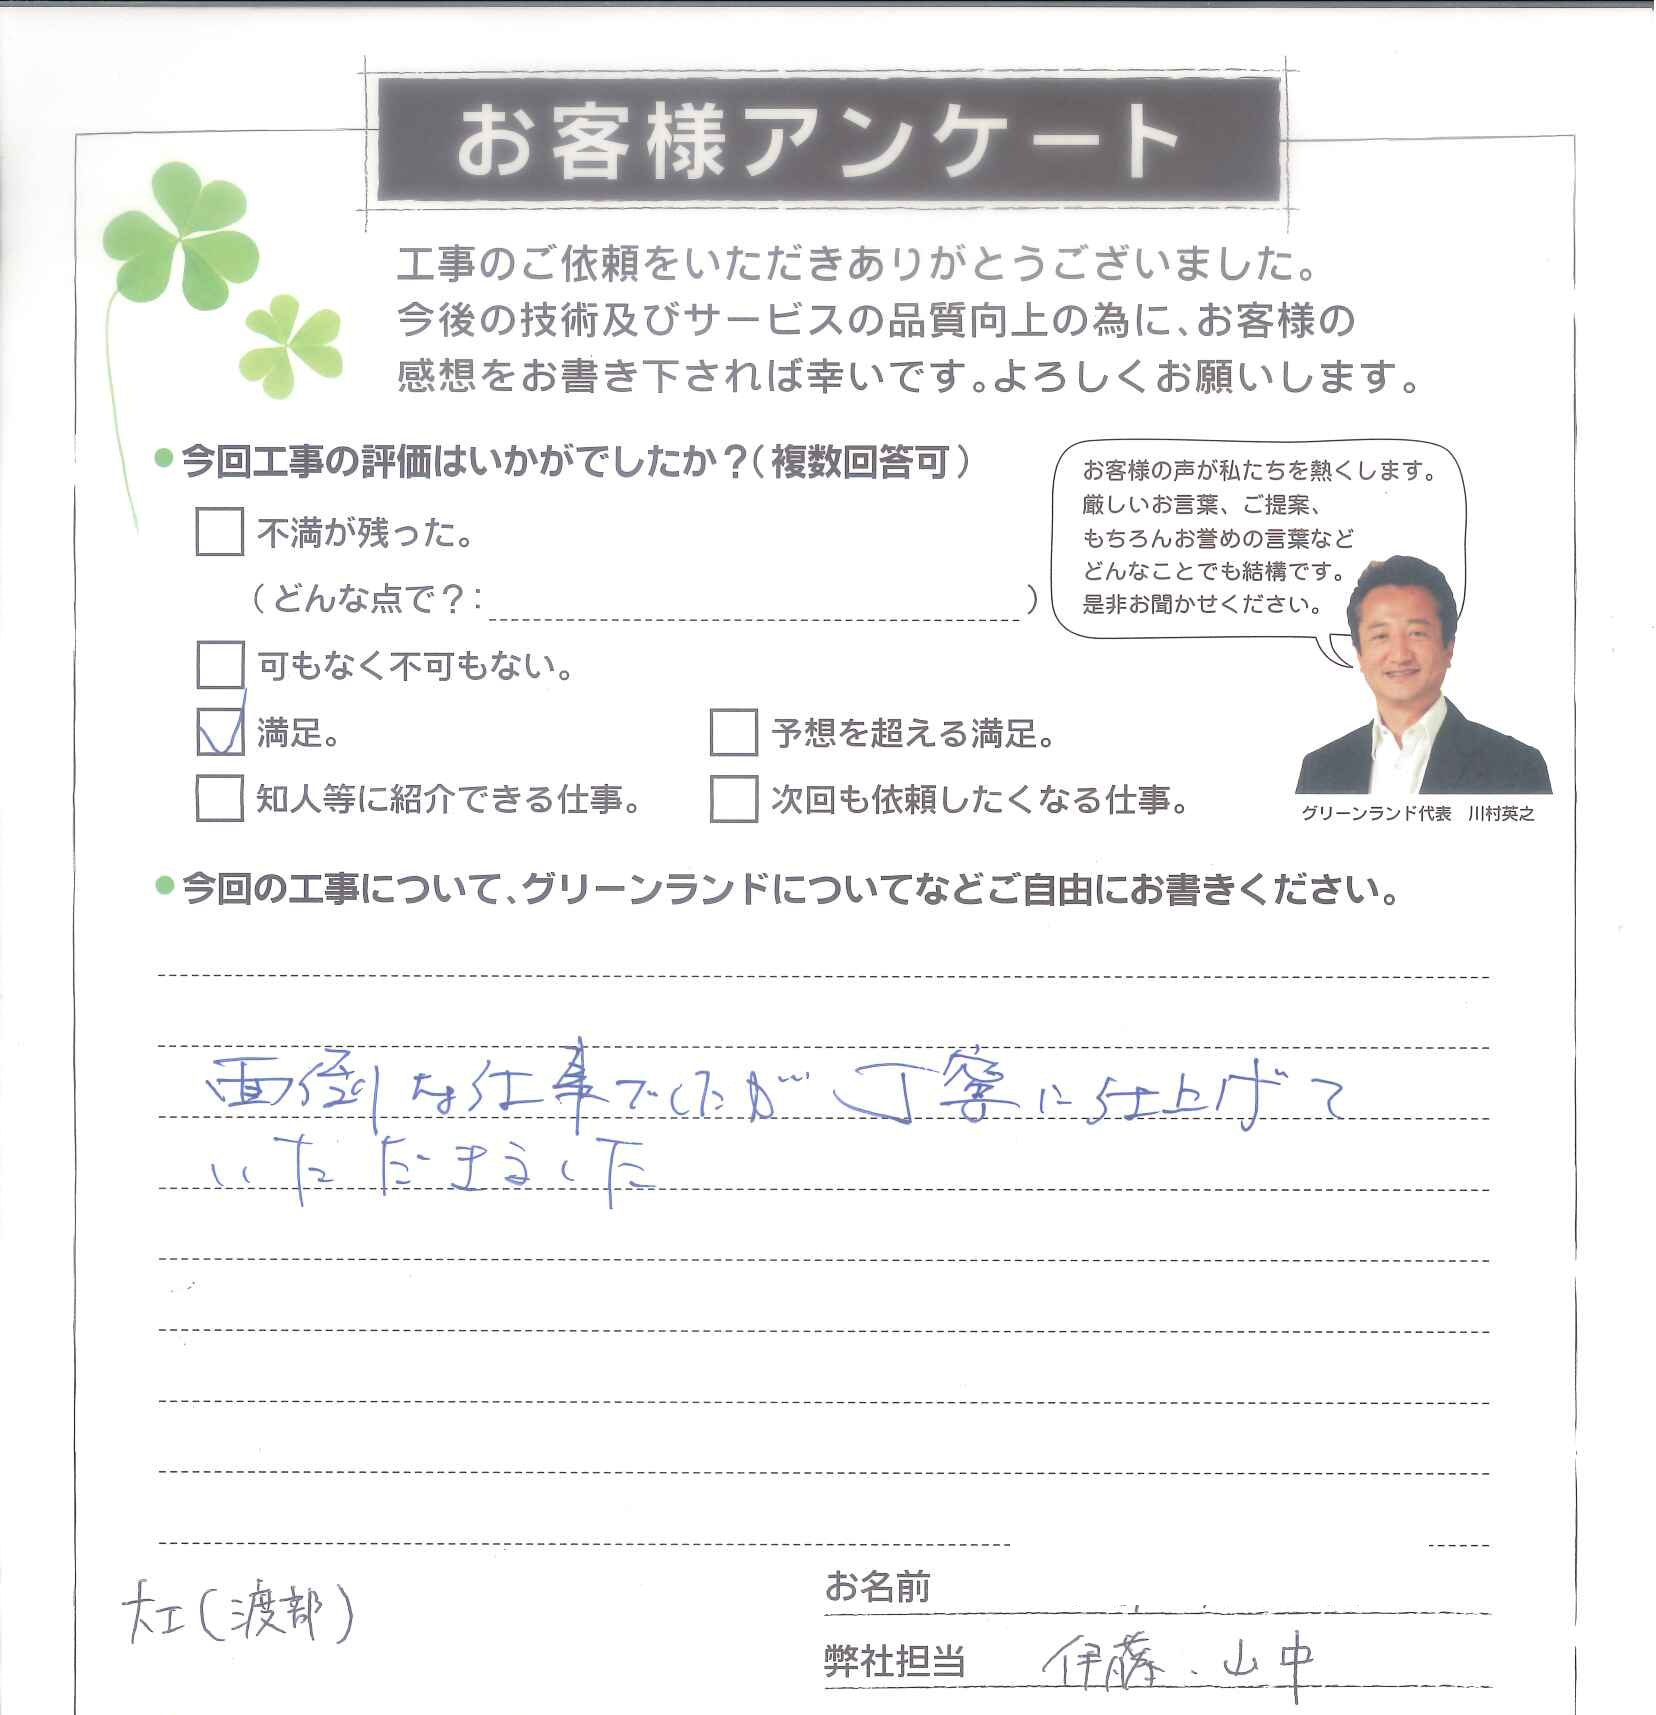 お客様アンケート
工事のご依頼をいただきありがとうございました。
今後の技術及びサービスの品質向上の為に、お客様の
感想をお書き下されば幸いです。よろしくお願いします。
今回工事の評価はいかがでしたか？（複数回答可）
不満が残った。
（どんな点で？：）
可もなく不可もない。
満足。
予想を超える満足。
知人等に紹介できる仕事。
次回も依頼したくなる仕事。
お客様の声が私たちを熱くします。
厳しいお言葉、ご提案、
もちろんお誉めの言葉など
どんなことでも結構です。
是非お聞かせください。
グリーンランド代表　川村英之
今回の工事について、グリーンランドについてなどご自由にお書きください。
面倒な仕事でしたが丁寧に仕上げて
いただきました
大工（渡部）
お名前
弊社担当　伊藤、山中